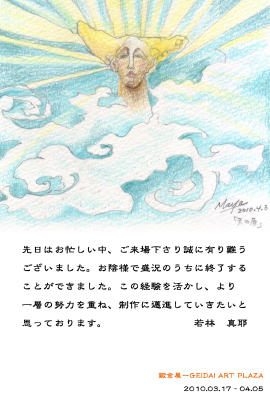 Maya
2010.4.3
先日はお忙しい中、ご来場下さり誠に有り難う
ございました。お陰様で盛況のうちに終了する
ことができました。この経験を活かし、より
一層の努力を重ね、制作に邁進していきたいと
思っております。 若林 真耶
鍛金展-GEIDAI ART PLAZA
2010.03.17 - 04.05